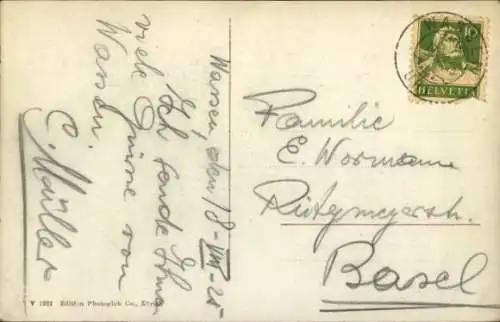 Wassen, den 18-VIII-25
Ich sende Ihnen
viele Grüsse von
Wassen.
C. Müller
Familie
E. Wormann
Rütymeyerstr.
Basel
10
HELVETIA
V 1281 Edition Photoglob Co., Zürich